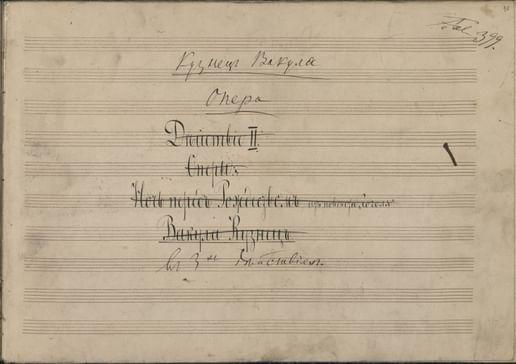 399.
Кузнецъ Вакула
Опера
Дѣйствіе II.
Оперы
Ночь передъ Рождествомъ
Вакула Кузнецъ
въ 3хъ Дѣйствіяхъ.